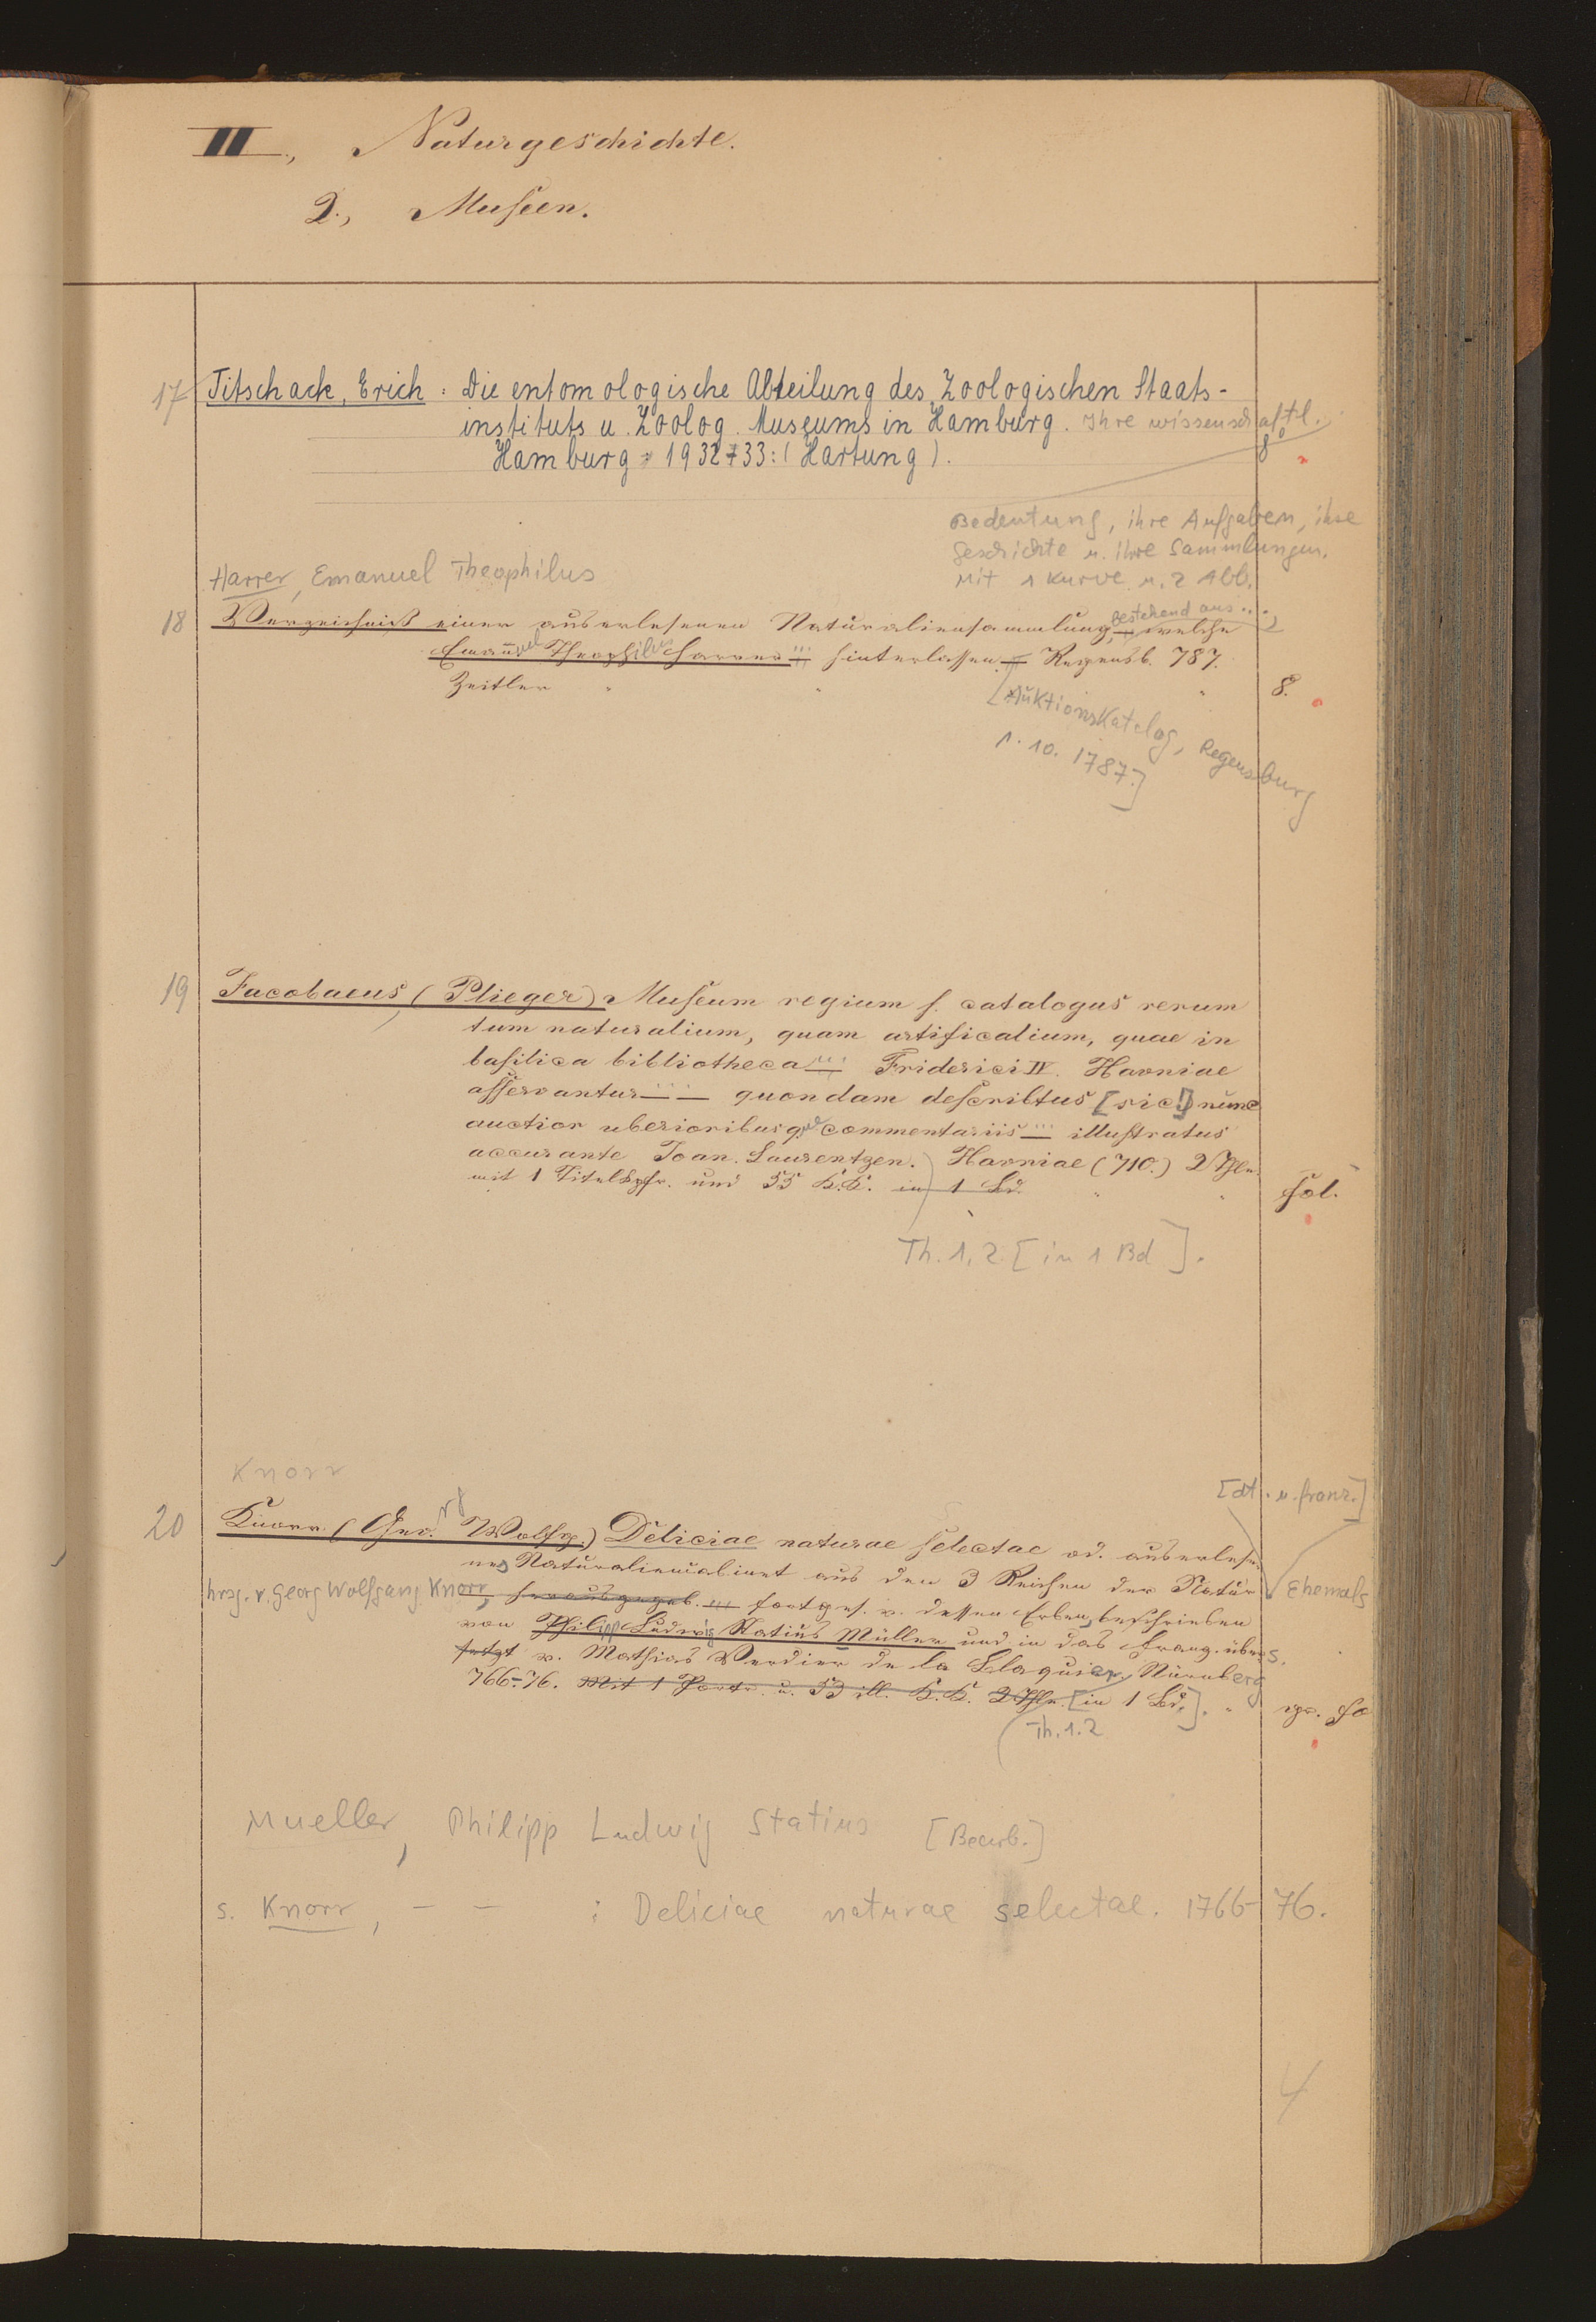 III., Naturgeschichte.
2., Museen.
17 Titschack, Erich : Die entomologische Abteilung des Zoologischen Staats-
instituts u. Zoolog. Museums in Hamburg. Ihre wissenschaftl.
Hamburg 1932-33: (Hartung). 8°
Bedeutung, ihre Aufgaben, ihre
Geschichte u. ihre Sammlungen.
Mit 1 Kurve u. 2 Abb.
Harrer, Emanuel Theophilus
bestehend aus ...
18 Verzeichniß einer auserlesenen Naturaliensammlung, — welche
Emanuel Theophilus Harrer ... hinterlassen. — Regensb. 787.
Zeitler " " " 8.
[Auktionskatalog, Regensburg
1. 10. 1787.]
19 Jacobaeus, (Oliger) Museum regium s. catalogus rerum
tum naturalium, quam artificalium, quae in
basilica bibliotheca ... Friderici IV. Havniae
asservantur ... — quondam describtus [sic!] nunc
auctior uberioribusque commentariis ... illustratus
accurante Joan. Laurentzen. Havniae (710.) 2 Thle.
mit 1 Titelkpfr. und 55 K.K. in 1 Bd. " " fol.
Th. 1.2 [in 1 Bd].
Knorr
[dt. u. franz.]
20 Knorr (Geo. Wolfg.) Deliciae naturae selectae od. auserlese-
nes Naturaliencabinet aus den 3 Reichen der Natur Ehemals
hrsg. v. Georg Wolfgang Knorr, herausgegeb. ... fortges. v. dessen Erben, beschrieben
von Philipp Ludwig Statius Müller und in das Franz. übers.
setzt v. Mathias Verdier de la Blaquier, Nürnberg
766-76. Mit 1 Portr. u. 53 ill. K.K. 2 Thle. [in 1 Bd.]. " gr. fo
Th. 1.2
Mueller, Philipp Ludwig Statius [Bearb.]
s. Knorr, — — : Deliciae naturae selectae. 1766-76.
4